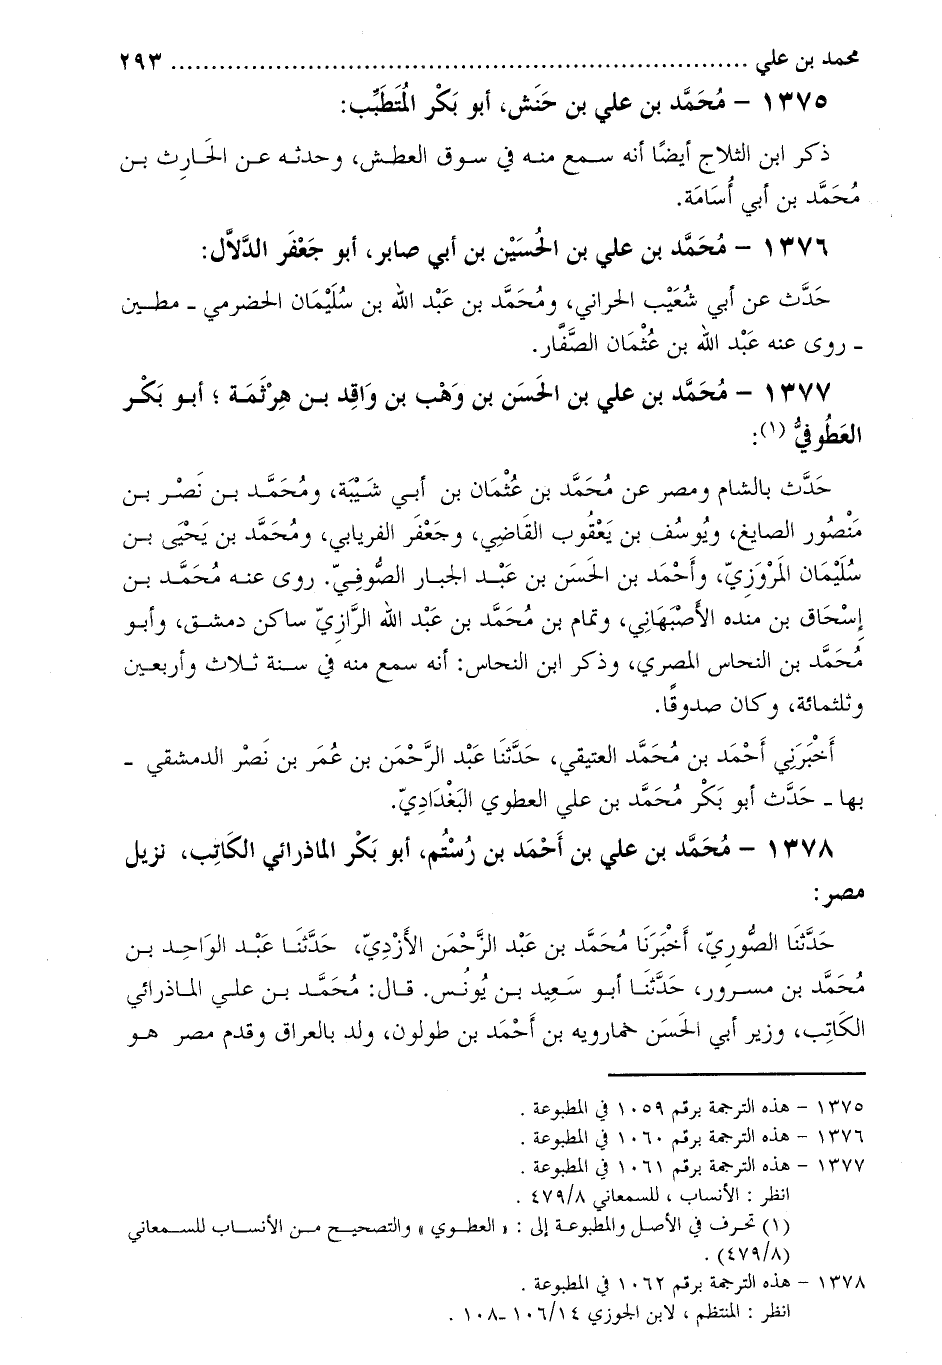 محمد بن علي ........................................................................ ٢٩٣
١٣٧٥ – مُحَمَّد بن علي بن حَنَش، أبو بَكْر المُتَطَبِّب:
ذكر ابن الثلاج أيضًا أنه سمع منه في سوق العطش، وحدثه عن الحَارِث بن
مُحَمَّد بن أبي أُسَامَة.
١٣٧٦ – مُحَمَّد بن علي بن الحُسَيْن بن أبي صابر، أبو جَعْفَر الدَّلاَّل:
حَدَّث عن أبي شُعَيْب الحراني، ومُحَمَّد بن عَبْد الله بن سُلَيْمَان الحضرمي ـ مطين
ـ روى عنه عَبْد الله بن عُثْمَان الصَّفَّار.
١٣٧٧ – مُحَمَّد بن علي بن الحَسَن بن وَهْب بن وَاقِد بن هِرْثَمَة ؛ أبو بَكْر
العَطُوفيُّ (١):
حَدَّث بالشام ومصر عن مُحَمَّد بن عُثْمَان بن أبي شَيْبَة، ومُحَمَّد بن نَصْر بن
مَنْصُور الصايغ، ويُوسُف بن يَعْقُوب القَاضِي، وجَعْفَر الفريابي، ومُحَمَّد بن يَحْيَى بن
سُلَيْمَان المَرْوَزِيّ، وأَحْمَد بن الحَسَن بن عَبْد الجبار الصُّوفِيّ. روى عنه مُحَمَّد بن
إسْحَاق بن منده الأَصْبَهَانِي، وتمام بن مُحَمَّد بن عَبْد الله الرَّازِيّ ساكن دمشق، وأبو
مُحَمَّد بن النحاس المصري، وذكر ابن النحاس: أنه سمع منه في سنة ثلاث وأربعين
وثلثمائة، وكان صدوقًا.
أَخْبَرَنِي أَحْمَد بن مُحَمَّد العتيقي، حَدَّثَنَا عَبْد الرَّحْمَن بن عُمَر بن نَصْر الدمشقي ـ
بها ـ حَدَّث أبو بَكْر مُحَمَّد بن علي العطوي البَغْدَادِيّ.
١٣٧٨ – مُحَمَّد بن علي بن أَحْمَد بن رُسْتُم، أبو بَكْر الماذرائي الكَاتِب، نزيل
مصر:
حَدَّثَنَا الصُّوريّ، أَخْبَرَنَا مُحَمَّد بن عَبْد الرَّحْمَن الأَزْدِيّ، حَدَّثَنَا عَبْد الوَاحِد بن
مُحَمَّد بن مسرور، حَدَّثَنَا أبو سَعِيد بن يُونُس. قال: مُحَمَّد بن علي الماذرائي
الكَاتِب، وزير أبي الحَسَن خمارويه بن أَحْمَد بن طولون، ولد بالعراق وقدم مصر هو
١٣٧٥ – هذه الترجمة برقم ١٠٥٩ في المطبوعة .
١٣٧٦ – هذه الترجمة برقم ١٠٦٠ في المطبوعة .
١٣٧٧ – هذه الترجمة برقم ١٠٦١ في المطبوعة .
انظر : الأنساب ، للسمعاني ٤٧٩/٨ .
(١) تحرف في الأصل والمطبوعة إلى : « العطوي » والتصحيح من الأنساب للسمعاني
(٤٧٩/٨) .
١٣٧٨ – هذه الترجمة برقم ١٠٦٢ في المطبوعة .
انظر : المنتظم ، لابن الجوزي ١٠٦/١٤ ـ١٠٨ .